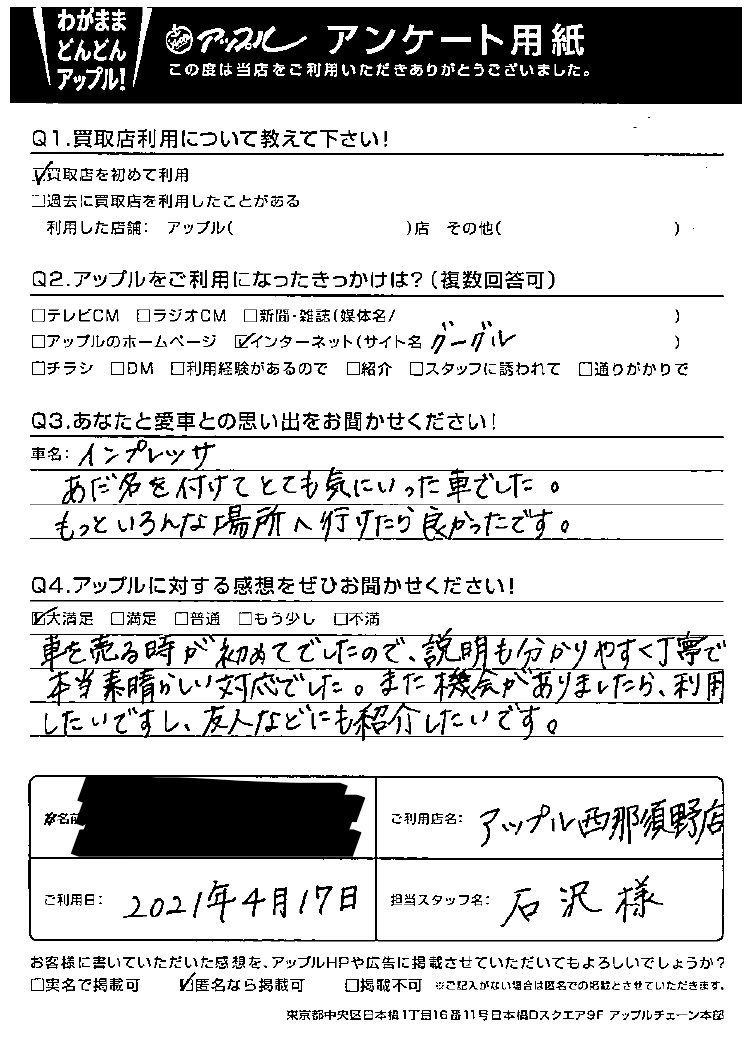 わがまま
どんどん
アップル!
アップル アンケート用紙
この度は当店をご利用いただきありがとうございました。
Q1.買取店利用について教えて下さい!
☑買取店を初めて利用
□過去に買取店を利用したことがある
利用した店舗: アップル( )店 その他( )
Q2.アップルをご利用になったきっかけは?(複数回答可)
□テレビCM □ラジオCM □新聞・雑誌(媒体名/ )
□アップルのホームページ ☑インターネット(サイト名 グーグル )
□チラシ □DM □利用経験があるので □紹介 □スタッフに誘われて □通りがかりで
Q3.あなたと愛車との思い出をお聞かせください!
車名: インプレッサ
あだ名を付けてとても気にいった車でした。
もっといろんな場所へ行けたら良かったです。
Q4.アップルに対する感想をぜひお聞かせください!
☑大満足 □満足 □普通 □もう少し □不満
車を売る時が初めてでしたので、説明も分かりやすく丁寧で
本当素晴らしい対応でした。また機会がありましたら、利用
したいですし、友人などにも紹介したいです。
お名前
ご利用店名: アップル西那須野店
ご利用日: 2021年4月17日
担当スタッフ名: 石沢様
お客様に書いていただいた感想を、アップルHPや広告に掲載させていただいてもよろしいでしょうか?
□実名で掲載可 ☑匿名なら掲載可 □掲載不可 ※ご記入がない場合は匿名での掲載とさせていただきます。
東京都中央区日本橋1丁目16番11号日本橋Dスクエア9F アップルチェーン本部